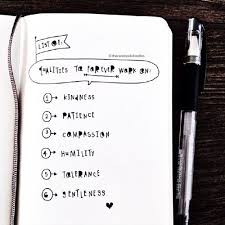 LIST OF:
QUALITIES TO FOREVER WORK ON:
1 KINDNESS
2 PATIENCE
3 COMPASSION
4 HUMILITY
5 TOLERANCE
6 GENTLENESS.